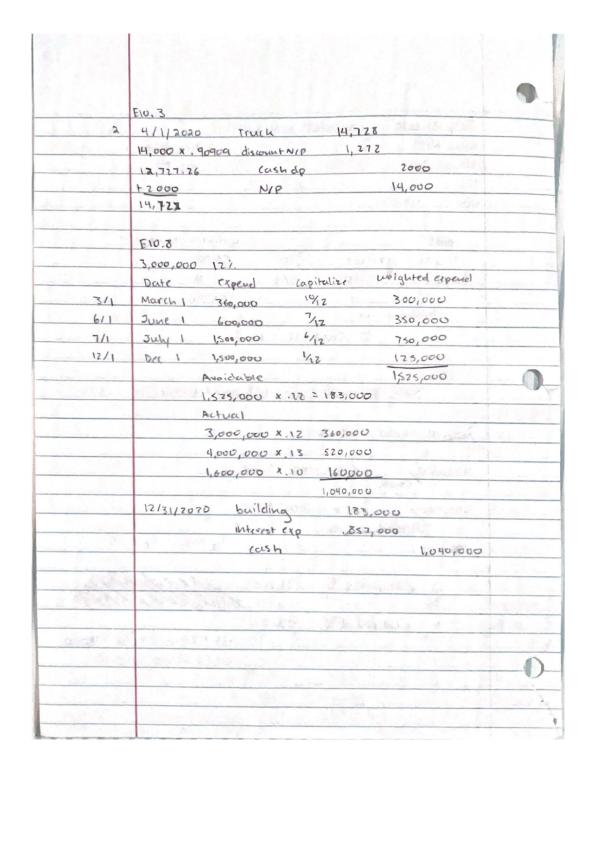 E10.3
2 4/1/2020 Truck 14,728
14,000 x .90909 discount N/P 1,272
12,727.26 Cash dp 2000
+2000 N/P 14,000
14,728
E10.8
3,000,000 12%
Date Expend Capitalize weighted expend
3/1 March 1 360,000 10/12 300,000
6/1 June 1 600,000 7/12 350,000
7/1 July 1 1,500,000 6/12 750,000
12/1 Dec 1 1,500,000 1/12 125,000
Avoidable 1,525,000
1,525,000 x .12 = 183,000
Actual
3,000,000 x .12 360,000
4,000,000 x .13 520,000
1,600,000 x .10 160000
1,040,000
12/31/2020 building 183,000
interest exp 857,000
cash 1,040,000